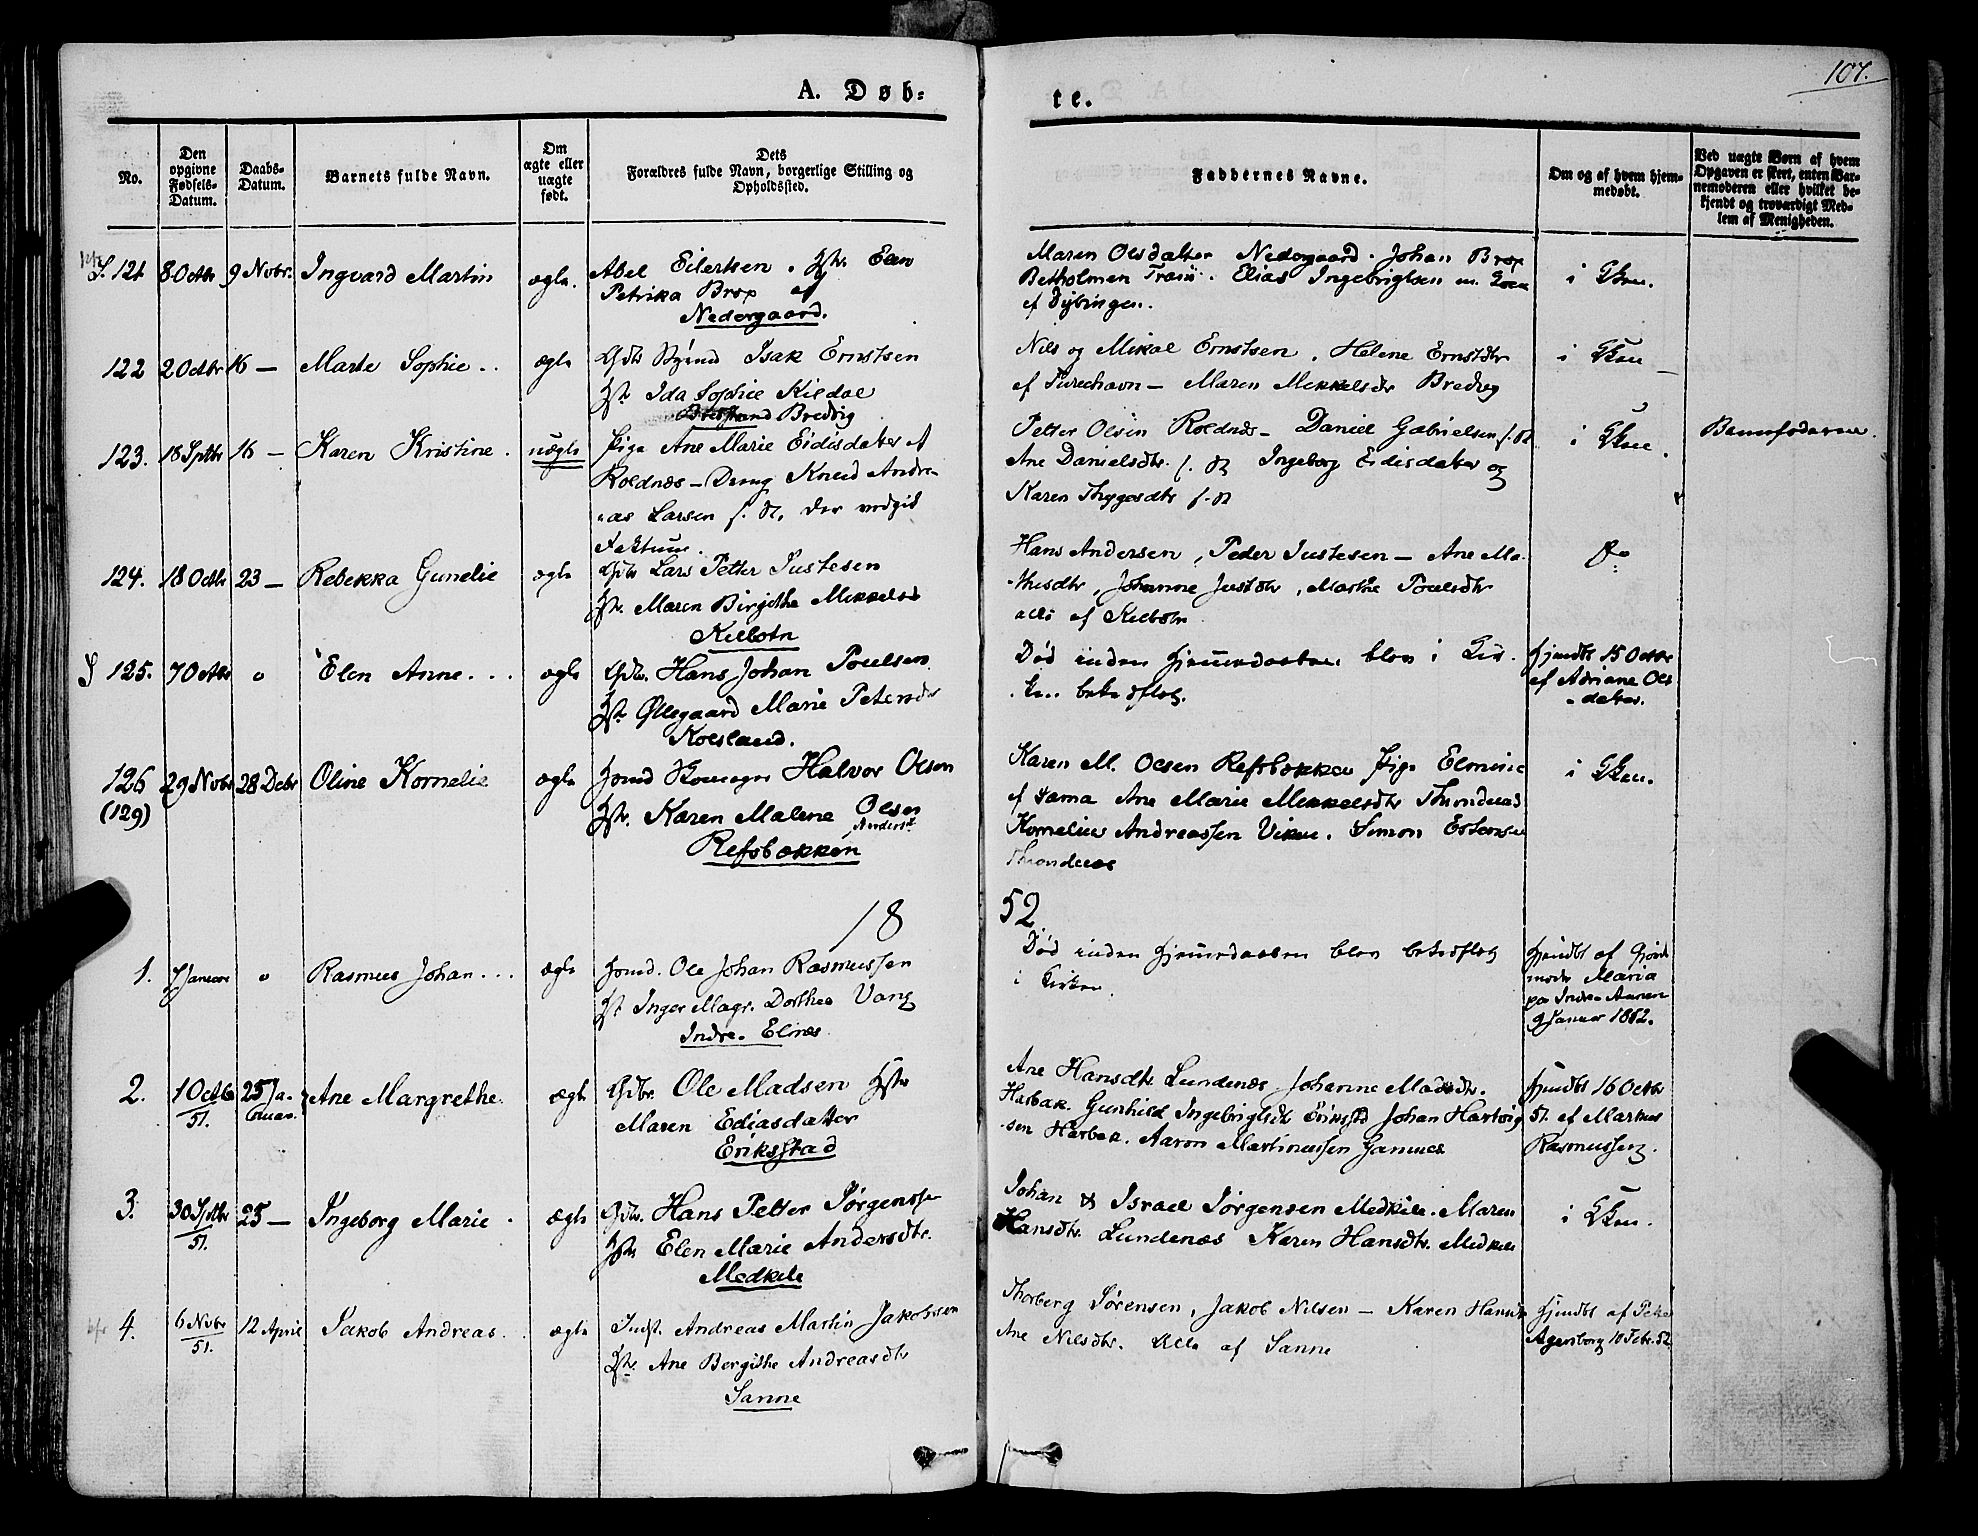 107.
A. Døb-
te.
No.
Den opgivne Fødsels-Datum.
Daabs-Datum.
Barnets fulde Navn.
Om ægte eller uægte født.
Dets Forældres fulde Navn, borgerlige Stilling og Opholdssted.
Faddernes Navne.
Om og af hvem hjem-
medøbt.
Ved uægte Børn af hvem
Opgaven er skeet, enten Bar-
nemoderen eller hvilket be-
kjendt og troværdigt Med-
lem af Menigheden.
121 8 Octbr 9 Novbr. Ingvard Martin ægte.
Abel Eilertsen. Hstr. Elen
Petrika Brox af
Nedergaard.
Maren Olsdatter Nedergaard. Johan Brox
Elias Ingebrigtsen
af Dybingen.
i
122 2 Octbr 16 — Marte Sophie .. ægte
Isak Ernstsen
Hstr. Ida Sophie Kildal
Bredvig
Nils og Mikal Ernstsen, Helene Ernstdtr
af — Maren Mekkelsdtr Bredvig
i
123. 18 Septbr 16 — Karen Kristine. uægte
Pige Ane Marie Eidisdatter af
Roldnæs — Andre-
-as Larsen f. St. der vedgik
Faktum.
Petter Olsen Roldnæs — Daniel Gabrielsen f. St
Ane Danielsdtr. f. St Ingeborg Eidisdatter og
Karen Thygesdtr f. St
i
Barnefaderen.
124. 18 Octbr 23 — Rebekka Gunelie ægte
Lars Petter Justesen
Hstr. Maren Birgithe Mekkelsd
Kilbotn
Hans Andersen, Peder Justesen — Ane Ma-
-thisdtr, Johanne Justdtr, Marthe Poulsdtr
alle af Kilbotn
125. 7 Octbr o Elen Anne ... ægte
Gbr. Hans Johan Poulsen.
Hstr. Øllegaard Marie Petersdtr
Kolsland.
Død inden Hjemmedaaben blev i Kir-
-ken bekræftet.
Hjemdbt 15 Octbr
af Adriane Ols-
-datter.
126
(129) 29 Novbr 28 Debr Oline Kornelie ægte
Halvor Olsen
Hstr. Karen Malene Olsen
Andersd
Refsbækken
Karen M. Olsen Refsbækken Pige Elmine
af samme Ane Marie Mekkelsdtr Throndenæs
Kornelius Andreassen Viken. Simon Estensen
Throndenæs
i
18
52
1. 7 Januar o Rasmus Johan ... ægte
Ole Johan Rasmussen
Hst Inger Magr. Dorthea Vang
Indre. Elnes
Død inden Hjemmedaaben blev bekræftet
i Kirken.
Hjemdbt af Gjord-
moder Maria
paa Indre
9 Januar 1852.
2. 1 Octbr
51. 25 Ja-
nuar. Ane Margrethe. ægte
Gbr. Ole Madsen Hstr
Maren Ediasdatter
Eriksstad
Ane Hansdtr Lundenæs Johanne Madsdtr.
Harbak. Gunhild Ingebrigtsdtr Eriksstd Johan Hartvig-
-sen Harbak. Aaron Martinussen Gamnes
Hjemdbt 16 Octbr
51. af Markus
Rasmussen.
3. 30 Septbr
51. 25 — Ingeborg Marie. ægte
Gbr. Hans Petter Jørgensen
Hstr Elen Marie Andersdtr.
Medkile
Johan & Israel Jørgensen Medkile. Maren
Hansdtr. Lundenæs Karen Hansdtr. Medkile
i
4. 6 Novbr
51. 12 April Jakob Andreas. ægte
Indst. Andreas Martin Jakobsen
Hstr Ane Bergithe Andreasdtr
Sanne
Thorberg Sørensen, Jakob Nilsen — Karen Hansdtr
Ane Nilsdtr. Alle af Sanne
Hjemdbt af Peter
Agersborg 10 Febr. 52.